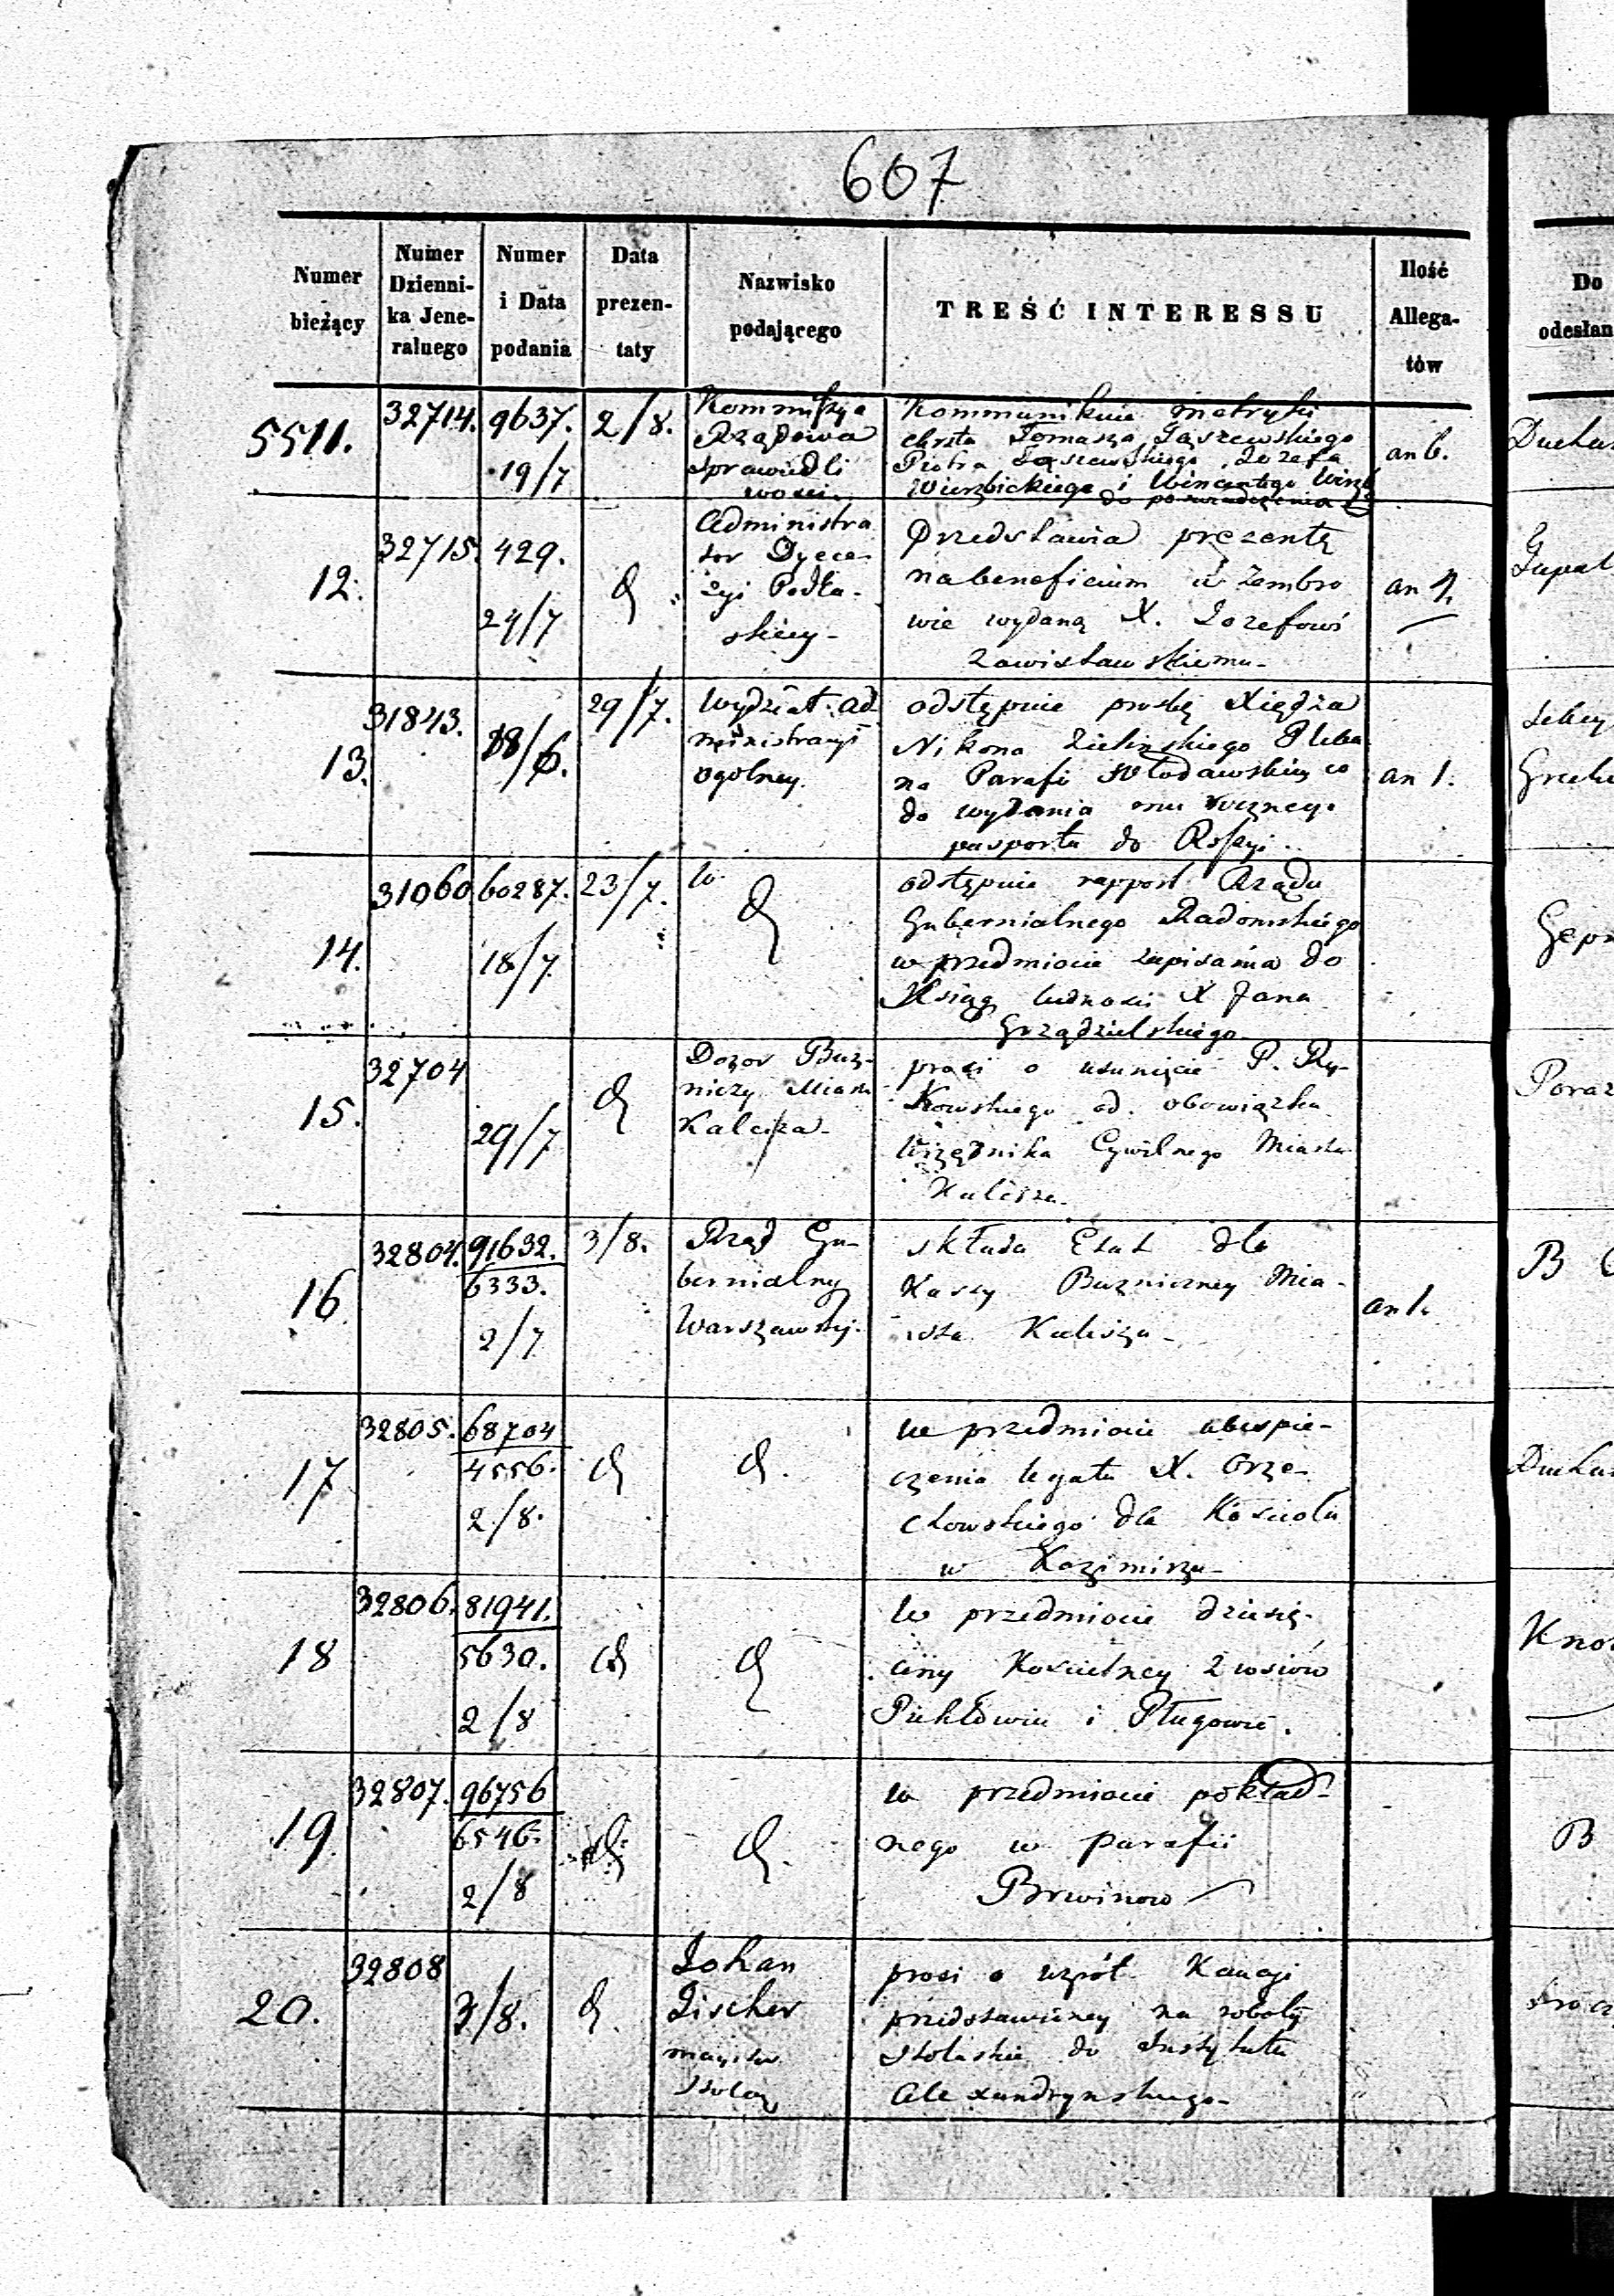 607
Numer bieżący
Numer Dzienni-ka Jene-ralnego
Numer i Data podania
Data prezen-taty
Nazwisko podającego
TREŚĆ INTERESSU
Ilość Allega-tów
Do
odesłan
5511.
32714.
9637.
19/7
2/8.
Kommissya
Rządowa
Sprawiedli
wości
Kommunikuie metryki
chrztu Tomasza Taszewskiego
Piotra Taszewskiego, Jozefa
Wierzbickiego i Wincentego
do poswiadczenia
an 6.
12.
32715.
429.
24/7
Administra
tor Dyece-
zyi Podla-
skiey-
Przedstawia prezentę
na beneficium w Zembro
wie wydaną X. Jozefowi
Zawistawskiemu-
an
13.
31843.
18/6.
29/7.
Wydział Ad
ministracyi
ogólney.
odstępuie prosbę Xiędza
Nikona Zielinskiego Pleba
na Parafi Włodawskiey co
do wydania mu roczneg.
pasportu do Rossyi.
an 1.
14.
31060
60287.
18/7.
23/7.
odstępuie rapport Rządu
Gubernialnego Radomskiego
w przedmiocie zapisania do
Xsiąg ludnosci X Jana
Grządzielskiego
15.
32704
29/7
Dozor Buz-
niczy Miasta
Kalisza-
prosi o usunięcie P. Ry-
kowskiego od obowiązku
Urzędnika Cywilnego Miasta
Kalisza.
16
32804.
91632.
6333.
2/7
3/8.
Rząd Gu-
bernialny
Warszawski.
składa Etat dla
Kassy Buzniczney Mia-
sta Kalisza-
an 1.
B
17
32805.
68704
4556.
2/8.
w przedmiocie ubespie-
czenia legatu X. Orze-
chowskiego dla Kościoła
w Kazimirzu-
18
32806.
81941.
5630.
2/8
W przedmiocie dziesię-
ciny Koscielney z wsiow
i Pługowie.
19.
32807.
96756
6546.
2/8
w przedmiocie pokład-
nego w parafii
Brwinow
B
20.
32808
3/8.
Johan
Fischer
prosi o Kaucyi
przedstawioney na roboty
stolarskie do Instytutu
Alexandrynskiego-